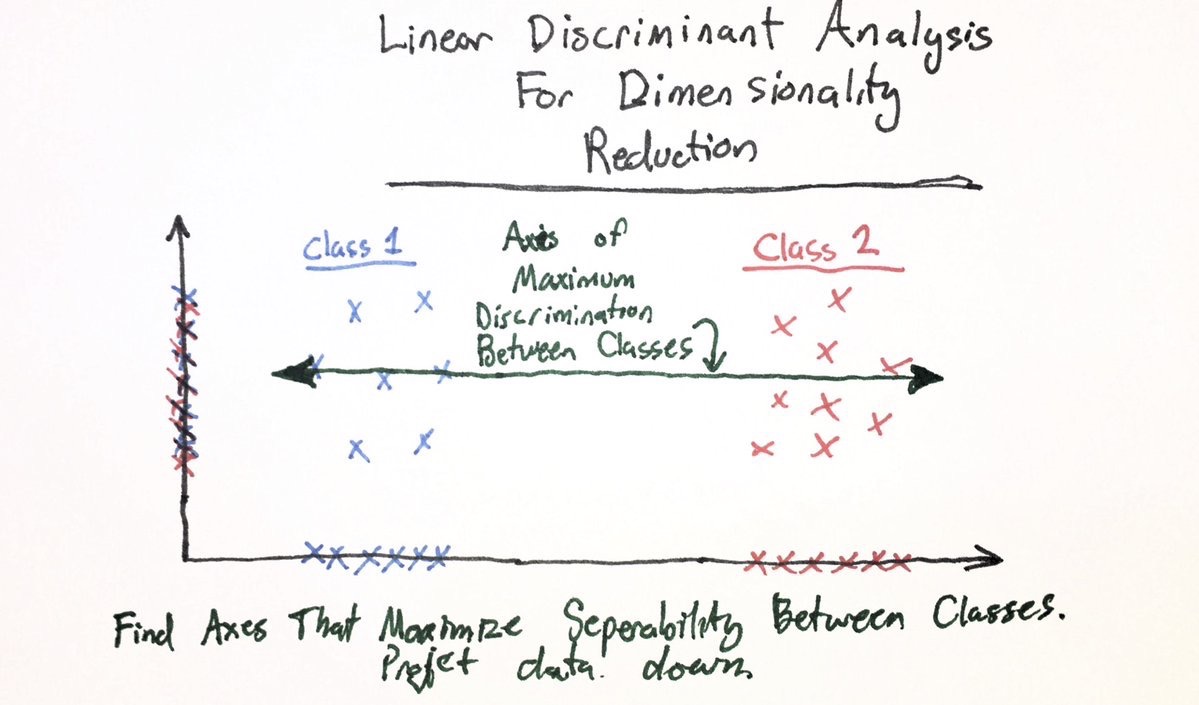 Linear Discriminant Analysis
For Dimensionality
Reduction
Class 1
Axis of
Maximum
Discrimination
Between Classes
Class 2
Find Axes That Maximize Seperability Between Classes.
Projct data down